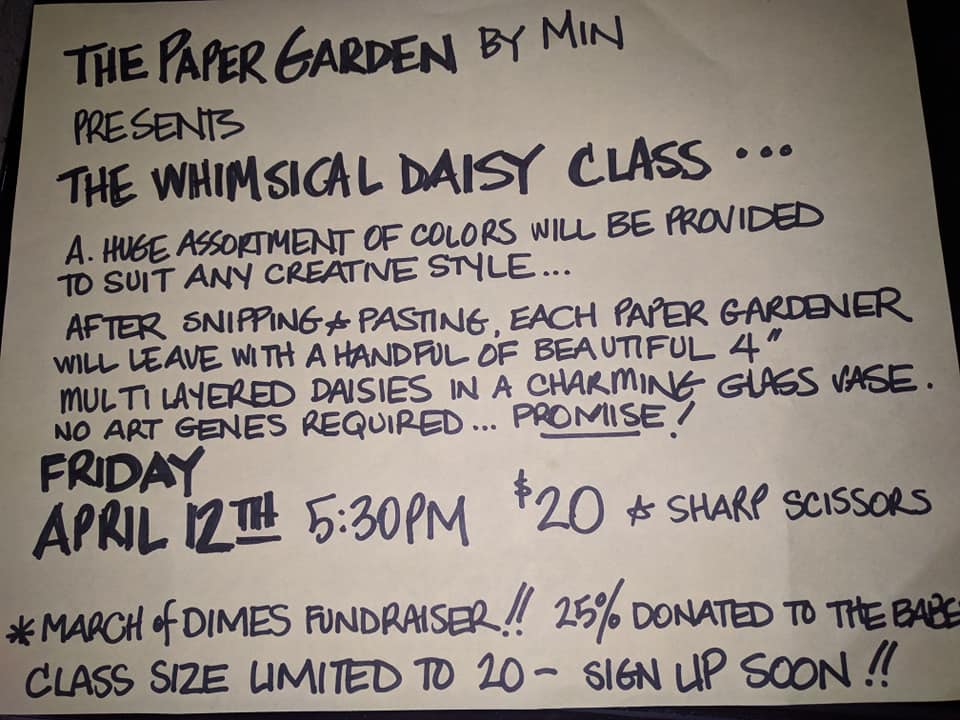 THE PAPER GARDEN BY MIN
PRESENTS
THE WHIMSICAL DAISY CLASS ...
A. HUGE ASSORTMENT OF COLORS WILL BE PROVIDED
TO SUIT ANY CREATIVE STYLE...
AFTER SNIPPING & PASTING, EACH PAPER GARDENER
WILL LEAVE WITH A HANDFUL OF BEAUTIFUL 4"
MULTI LAYERED DAISIES IN A CHARMING GLASS VASE.
NO ART GENES REQUIRED... PROMISE!
FRIDAY
APRIL 12TH 5:30PM $20 & SHARP SCISSORS
* MARCH of DIMES FUNDRAISER!! 25% DONATED TO THE BABE
CLASS SIZE LIMITED TO 20 - SIGN UP SOON!!